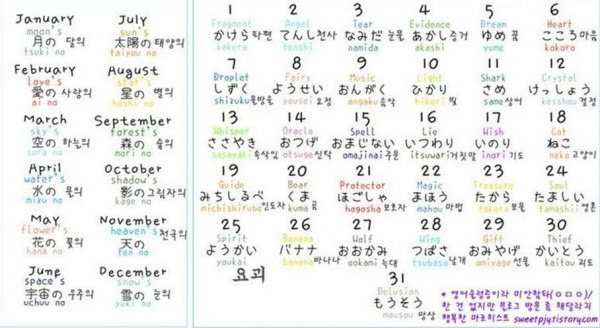 January
moon's
月の 달의
tsuki no
July
sun's
太陽の 태양의
taiyou no
February
love's
愛の 사랑의
ai no
August
star's
星の 별의
hoshi no
March
sky's
空の 하늘의
sora no
September
forest's
森の 숲의
mori no
April
water's
水の 물의
mizu no
October
shadow's
影の 그림자의
kage no
May
flower's
花の 꽃의
hana no
November
heaven's 천국의
天の
ten no
June
space's
宇宙の 우주의
uchuu no
December
snow's
雪の 눈의
yuki no
1 2 3 4 5 6
Fragment Angel Tear Evidence Dream Heart
かけら 파편 てんし 천사 なみだ 눈물 あかし 증거 ゆめ 꿈 こころ 마음
kakera tenshi namida akashi yume kokoro
7 8 9 10 11 12
Droplet Fairy Music Light Shark Crystal
しずく ようせい おんがく ひかり さめ けっしょう
shizuku 물방울 yousei 요정 ongaku 음악 hikari 빛 same 상어 kesshou 결정
13 14 15 16 17 18
Whisper Oracle Spell Lie Wish Cat
ささやき おつげ おまじない いつわり いのり ねこ
sasayaki 속삭임 otsuge 신탁 omajinai 주문 itsuwari 거짓말 inori 기도 neko 고양이
19 20 21 22 23 24
Guide Bear Protector Magic Treasure Soul
みちしるべ くま ほごしゃ まほう たから たましい
michishirube 인도자 kuma 곰 hogosha 보호자 mahou 마법 takara 보물 tamashii 영혼
25 26 27 28 29 30
Spirit Banana Wolf Wing Gift Thief
ようかい バナナ おおかみ つばさ おみやげ かいとう
youkai banana 바나나 ookami 늑대 tsubasa 날개 omiyage 선물 kaitou 괴도
요괴
31
Delusion
もうそう
mousou 망상
* 영어울렁증이라 미안함다(ㅇㅁㅇ)/
한 건 없지만 블로그 방문 좀 해달라긔
행복한 마르히스트 sweetpjy.tistory.com